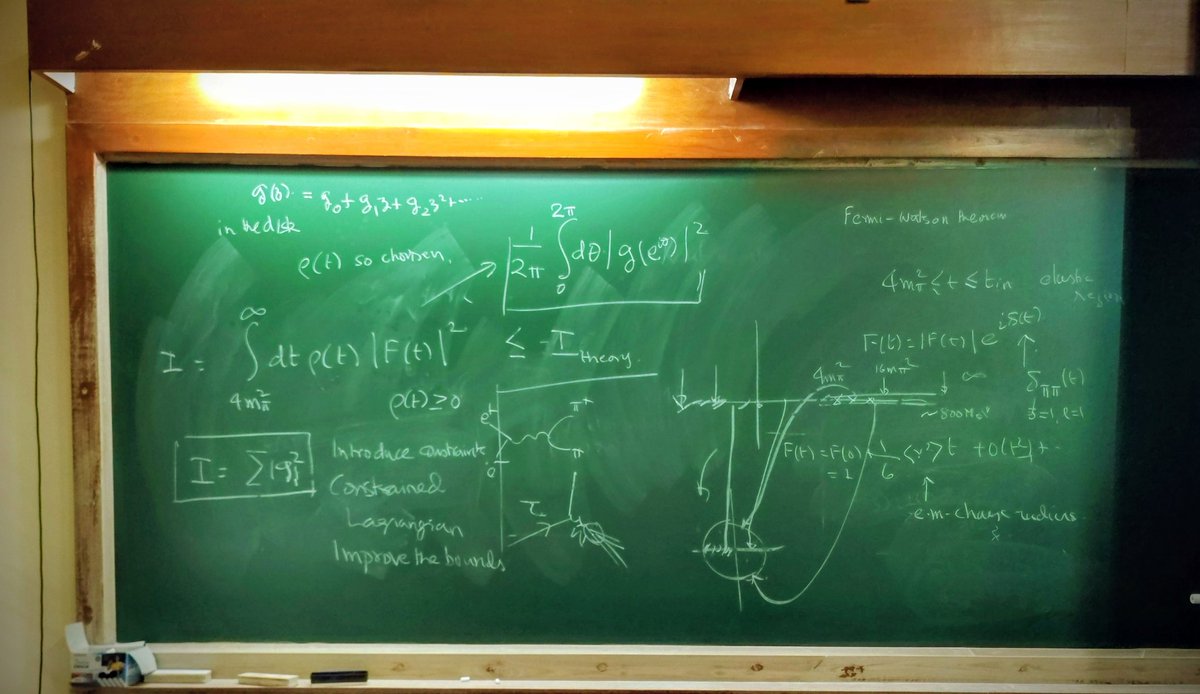 g(z) = g₀ + g₁z + g₂z² + .....
in the disk
ρ(t) so chosen,
1/2π ∫₀^2π dθ |g(e^iθ)|²
I = ∫_{4m_π²}^∞ dt ρ(t) |F(t)|² ≤ I theory
ρ(t) ≥ 0
I = Σ
Introduce constraints
Constrained
Lagrangian
Improve the bounds
e⁺
π⁺
π
τ
Fermi-Watson theorem
4m_π² ≤ t ≤ t in elastic
region
F(t) = |F(t)| e^iδ(t)
δ_ππ(t)
I=1, l=1
4m_π²
16m_π²
∞
~800 MeV
F(t) = F(0) 1/6 <r²> t + O(t²) + ..
= 1
e.m. charge radius